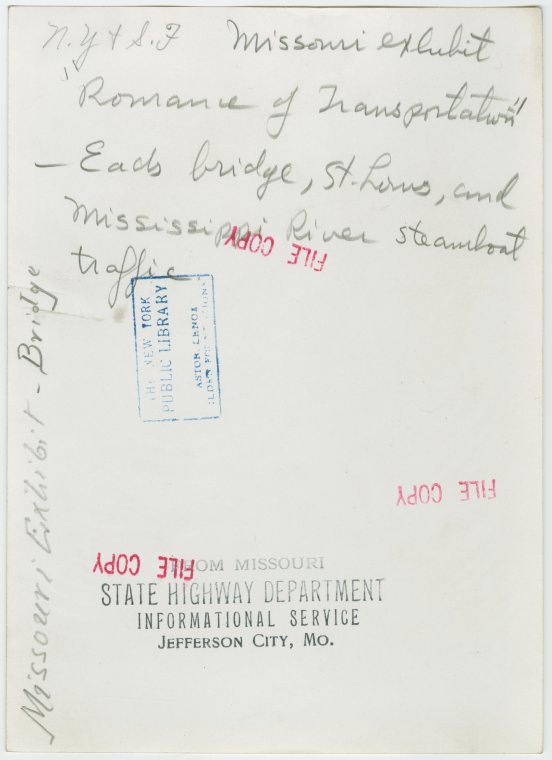 N.Y & S.F Missouri exhibit
"Romance of Transportation"
— Eads bridge, St. Louis, and
Mississippi River steamboat
traffic
FILE COPY
THE NEW YORK
PUBLIC LIBRARY
ASTOR LENOX
TILDEN FOUNDATIONS
Missouri Exhibit - Bridge
FILE COPY
FILE COPY
FROM MISSOURI
STATE HIGHWAY DEPARTMENT
INFORMATIONAL SERVICE
JEFFERSON CITY, MO.